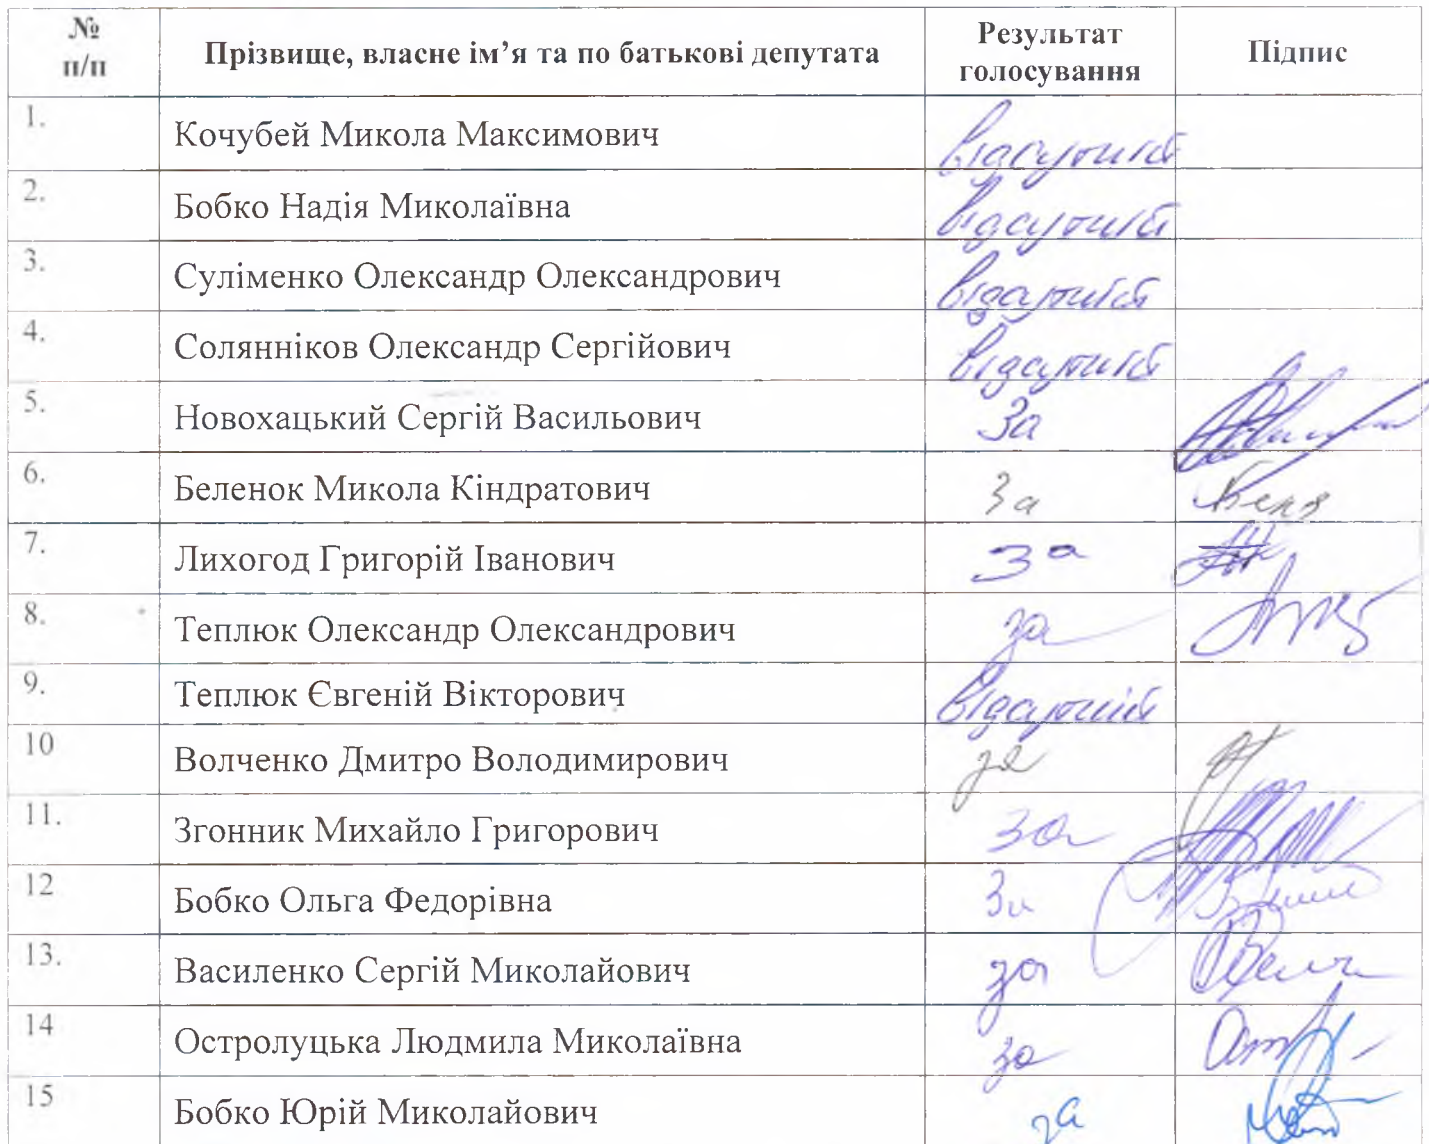 № п/п Прізвище, власне ім’я та по батькові депутата Результат голосування Підпис
1. Кочубей Микола Максимович відсутній
2. Бобко Надія Миколаївна відсутній
3. Суліменко Олександр Олександрович відсутній
4. Солянніков Олександр Сергійович відсутній
5. Новохацький Сергій Васильович За
6. Беленок Микола Кіндратович За
7. Лихогод Григорій Іванович За
8. Теплюк Олександр Олександрович за
9. Теплюк Євгеній Вікторович відсутній
10 Волченко Дмитро Володимирович за
11. Згонник Михайло Григорович за
12 Бобко Ольга Федорівна За
13. Василенко Сергій Миколайович за
14 Остролуцька Людмила Миколаївна за
15 Бобко Юрій Миколайович за